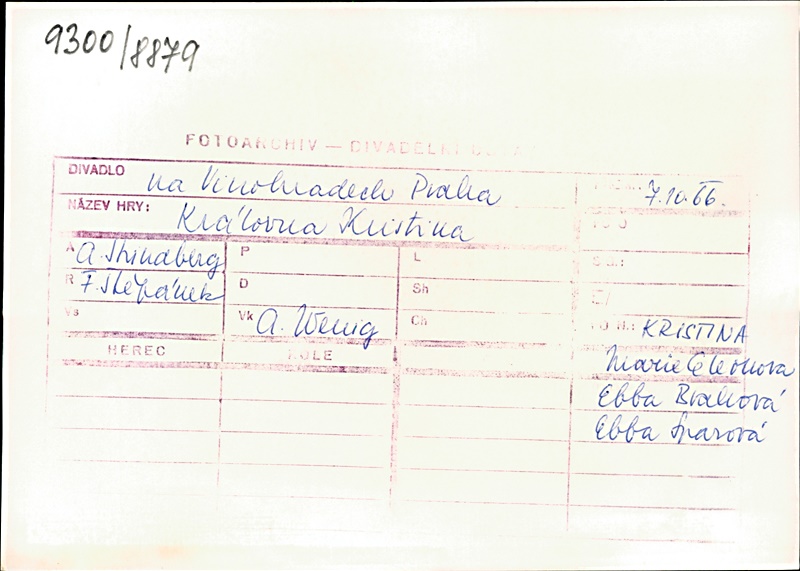 9300/8879
FOTOARCHIV — DIVADELNÍ
DIVADLO na Vinohradech Praha 7.10.66.
NÁZEV HRY: Královna Kristina
A A. Strindberg P L
R F. Štěpánek D Sh
Vs Vk A. Wenig Ch KRISTINA
HEREC ROLE Marie Eleonora
Ebba Brahová
Ebba Sparová